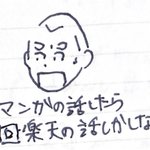 マンガの話したら
回楽天の話しかしな